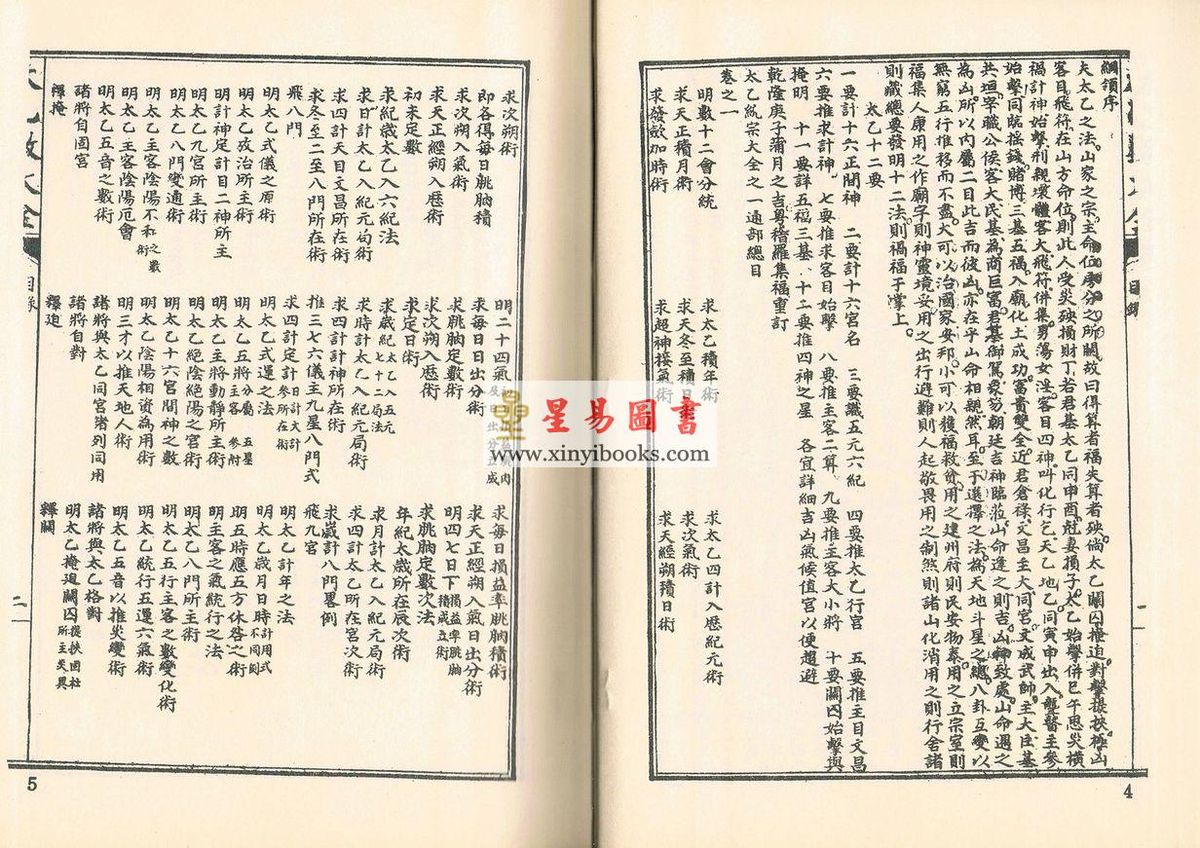 綱領序
夫太乙之法山家之宗主命位房分之所關故曰得算者福失算者殃倘太乙關囚掩迫對擊提挾極山
客目飛符在山方命位則此人受災殃損財丁若君基太乙同申酉尅妻損子太乙始擊併巳午惡災橫
禍計神始擊刑親壞體客大飛符併集男蕩女淫客目四神叫化行乞天乙地乙同寅申出入聾瞽主參
始擊同臨搖錢賭博三基五福入廟化土成功富貴變全近君倉祿文昌主大同宮文成武帥主大臣基
共垣宰職公候客大民基為商巨富君基御駕衆芻朝廷吉神臨葬山命逢之則吉凶神致處山命遇之
為凶所以內屬二目此吉而彼凶亦在乎山命相親然耳至于選擇之法為天地斗星之總八卦互變以
無窮五行推移而不盡大可以治國家安邦小可以獲福救貧用之建州府則民安物泰用之立宗室則
福集人康用之作廟宇則神靈境妥用之出行避難則人起敬畏用之制煞則諸山化消用之則行舍諸
則藏總要發明十二法則禍福于掌上
太乙十二要
一要計十六正間神 二要計十六宮名 三要識五元六紀 四要推太乙行宮 五要推主目文昌
六要推求計神 七要推求客目始擊 八要推主客二算 九要推主客大小將 十要關囚始擊與
掩明 十一要詳五福三基 十二要推四神之星 各宜詳細吉凶氣候值宮以便趨避
乾隆庚子蒲月之吉粵稽羅集福重訂
太乙統宗大全之一通部總目
卷之一
明數十二會分統 求太乙積年術 求太乙四計入歷紀元術
求天正積月術 求天冬至積日 求次氣術
求發歛加時術 求超神接氣術 求天經朔積日術
4
求次朔術 明二十四氣 求每日損益率朓朒積術
即各得每日朓朒積 求每日日出分術 求天正經朔入氣日出分術
求次朔入氣術 求朓朒定數術 明四七日下損益率朓朒積成立術
求天正經朔入歷術 求次朔入歷術 求朓朒定數次法
初末定數 求定日術 年紀太歲所在辰次術
求紀歲太乙入六紀法 求歲紀太乙入五元七十二局法 求月計太乙入紀元局術
求日計太乙入紀元局術 求時計太乙入紀元局術 求四計太乙所在宮次術
求四計天目文昌所在術 求四計計神所在術 求歲計八門畧例
求冬至二至八門所在術 推三七六儀主九星八門式 飛九宮
飛八門 求四計定計日計大計參所在術 明太乙計年之法
明太乙式儀之原術 明太乙式運之法 明太乙歲月日時計用式不同例
明太乙政治所主術 明太乙五將分屬五星主客參附 明五時應五方休咎之術
明計神定計目二神所主 明太乙主將動靜所主術 明主客之氣統行之法
明太乙九宮所主術 明太乙絕陰絕陽之宮術 明太乙八門所主術
明太乙八門變通術 明太乙十六宮間神之數 明太乙五行主客之數變化術
明太乙主客陰陽不和之數術 明太乙陰陽相資為用術 明太乙統行五運六氣術
明太乙主客陰陽厄會 明三才以推天地人術 明太乙五音以推災變術
明太乙五音之數術 諸將與太乙同宮常列同用 諸將與太乙格對
諸將自囚宮 諸將自對 明太乙掩迫關囚提挾囚杜所主災異
釋掩 釋迫 釋關
目錄
二
5
星易圖書
www.xinyibooks.com